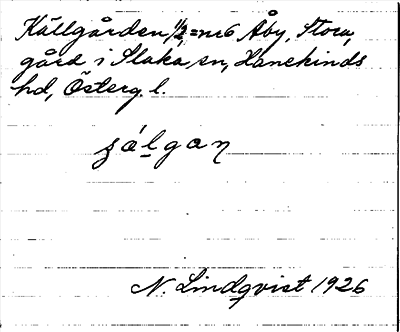 Källgården, 1/2, = nr 6 Åby, Stora,
gård i Slaka sn, Hanekinds
hd, Österg. l.
N. Lindqvist 1926